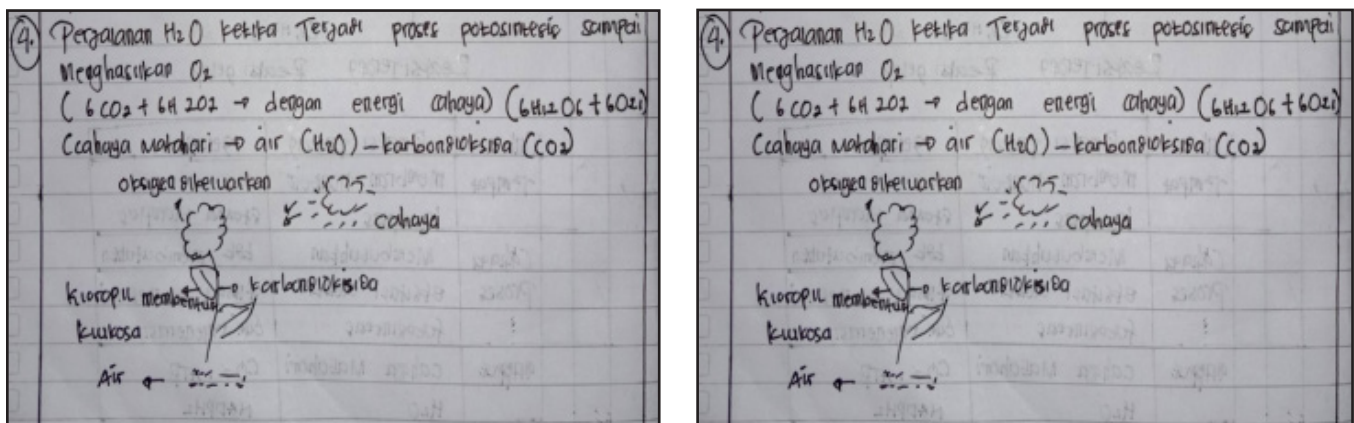 4. Perjalanan H2O ketika Terjadi proses potosintesis sampai
Menghasilkan O2
( 6 CO2 + 6H 2O2 → dengan energi cahaya) (6H12O6 + 6O2)
Ccahaya Matahari → air (H2O) – karbondioksida (CO2)
oksigen dikeluarkan
cahaya
Kloropil membentuk
karbondioksida
klukosa
Air ←
4. Perjalanan H2O ketika Terjadi proses potosintesis sampai
Menghasilkan O2
( 6 CO2 + 6H 2O2 → dengan energi cahaya) (6H12O6 + 6O2)
Ccahaya Matahari → air (H2O) – karbondioksida (CO2)
oksigen dikeluarkan
cahaya
Kloropil membentuk
karbondioksida
klukosa
Air ←